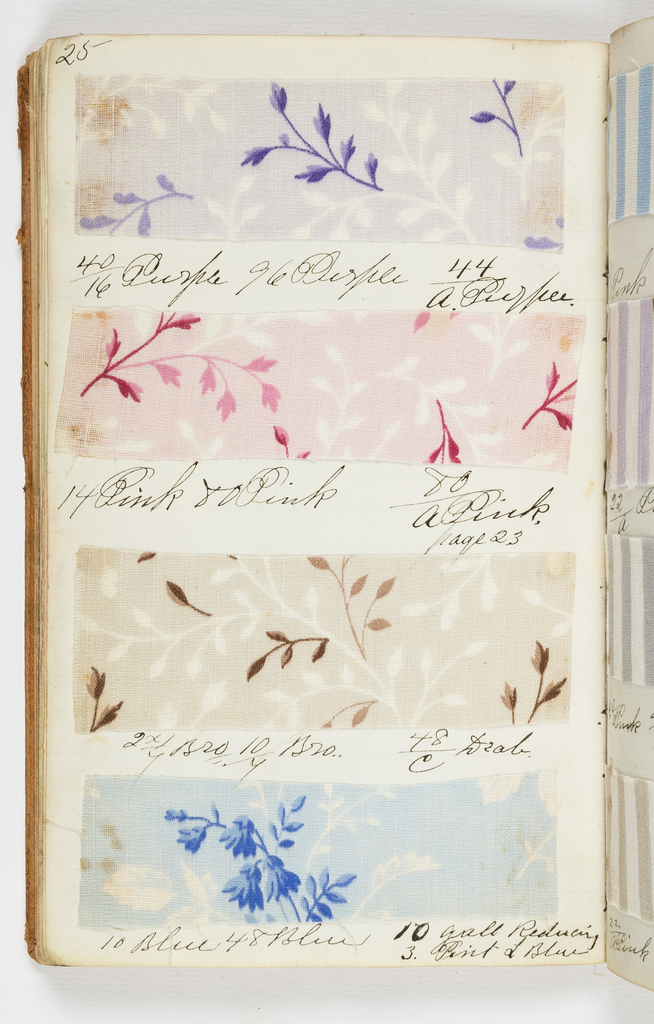 25
40/16 Purple 96 Purple 44/A. Purple.
14 Pink 80 Pink 80/A Pink.
page 23
Bro 10/4 Bro. 48/C Drab
10 Blue 48 Blue 10 Reducing
3. Pint Blue
Pink
22/A
Pink
Pink